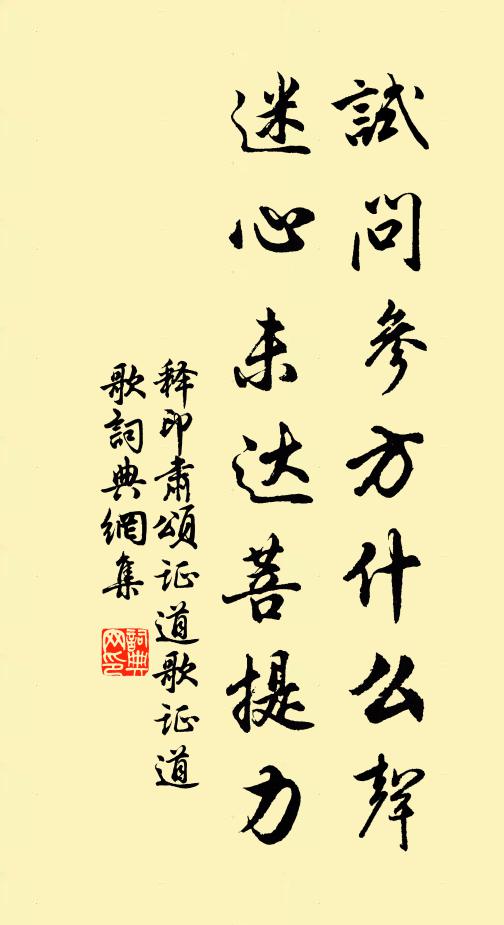 試問參方什么聲
迷心未达菩提力
释印肅頌证道歌证道
歌詞典網集
詞典
网印